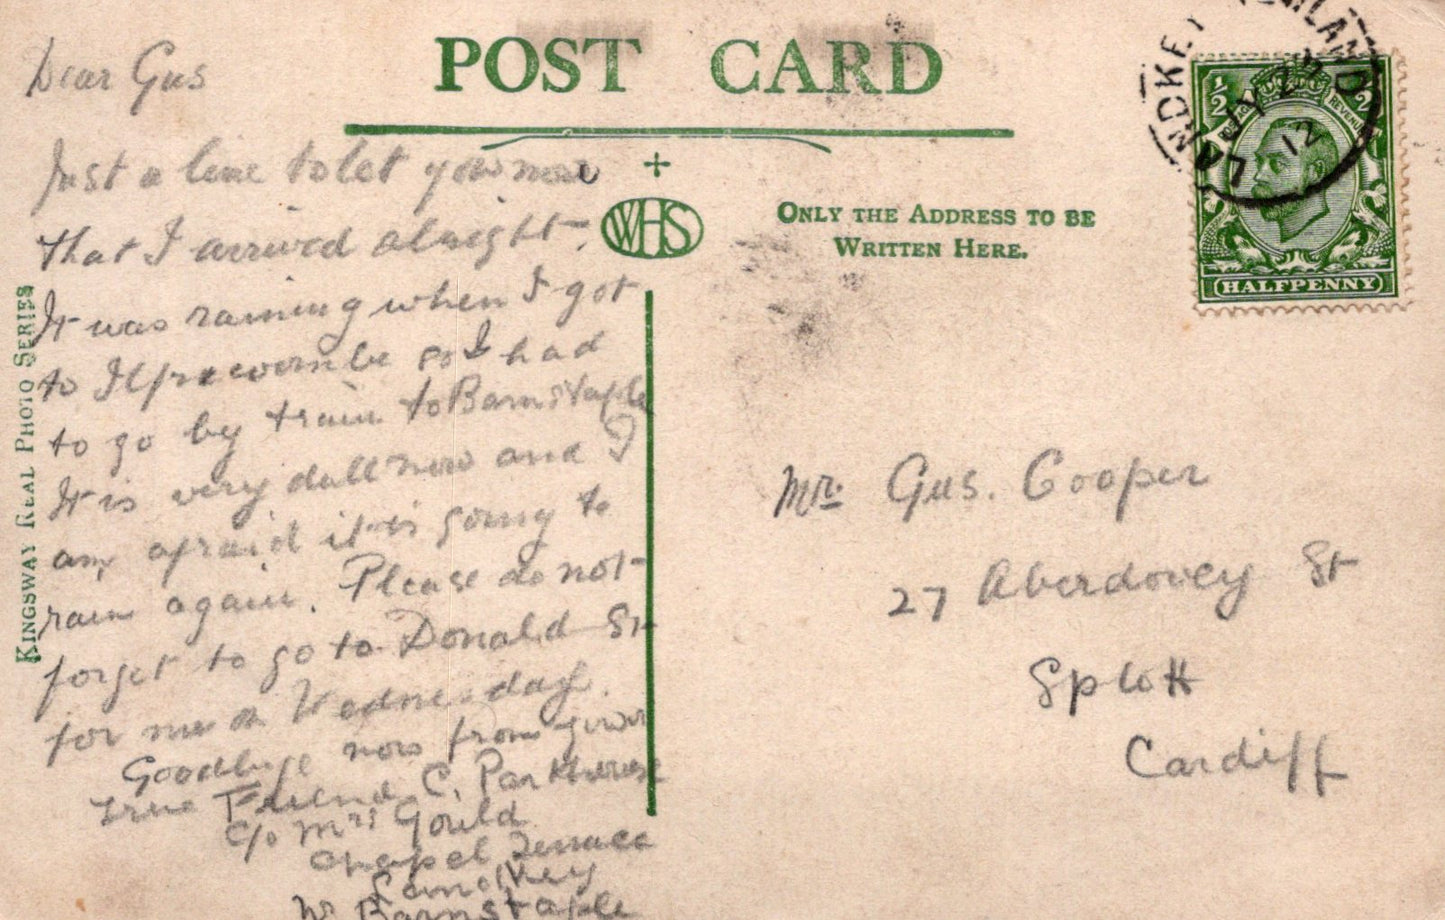 POST CARD
Dear Gus
Just a line to let you now
that I arrived alright.
It was raining when I got
to Ilfracombe so I had
to go by train to Barnstaple
It is very dull now and I
am afraid it is going to
rain again. Please do not
forget to go to Donald St
for me on Wednesday.
Goodbye now from your
true Friend C. Parkhouse
c/o Mrs Gould
Chapel Terrace
Landkey
Nr Barnstaple
KINGSWAY REAL PHOTO SERIES
WHS
ONLY THE ADDRESS TO BE
WRITTEN HERE.
LANDKEY
JY 22
12
½
REVENUE
HALFPENNY
Mr. Gus. Cooper
27 Aberdovey St
Splott
Cardiff